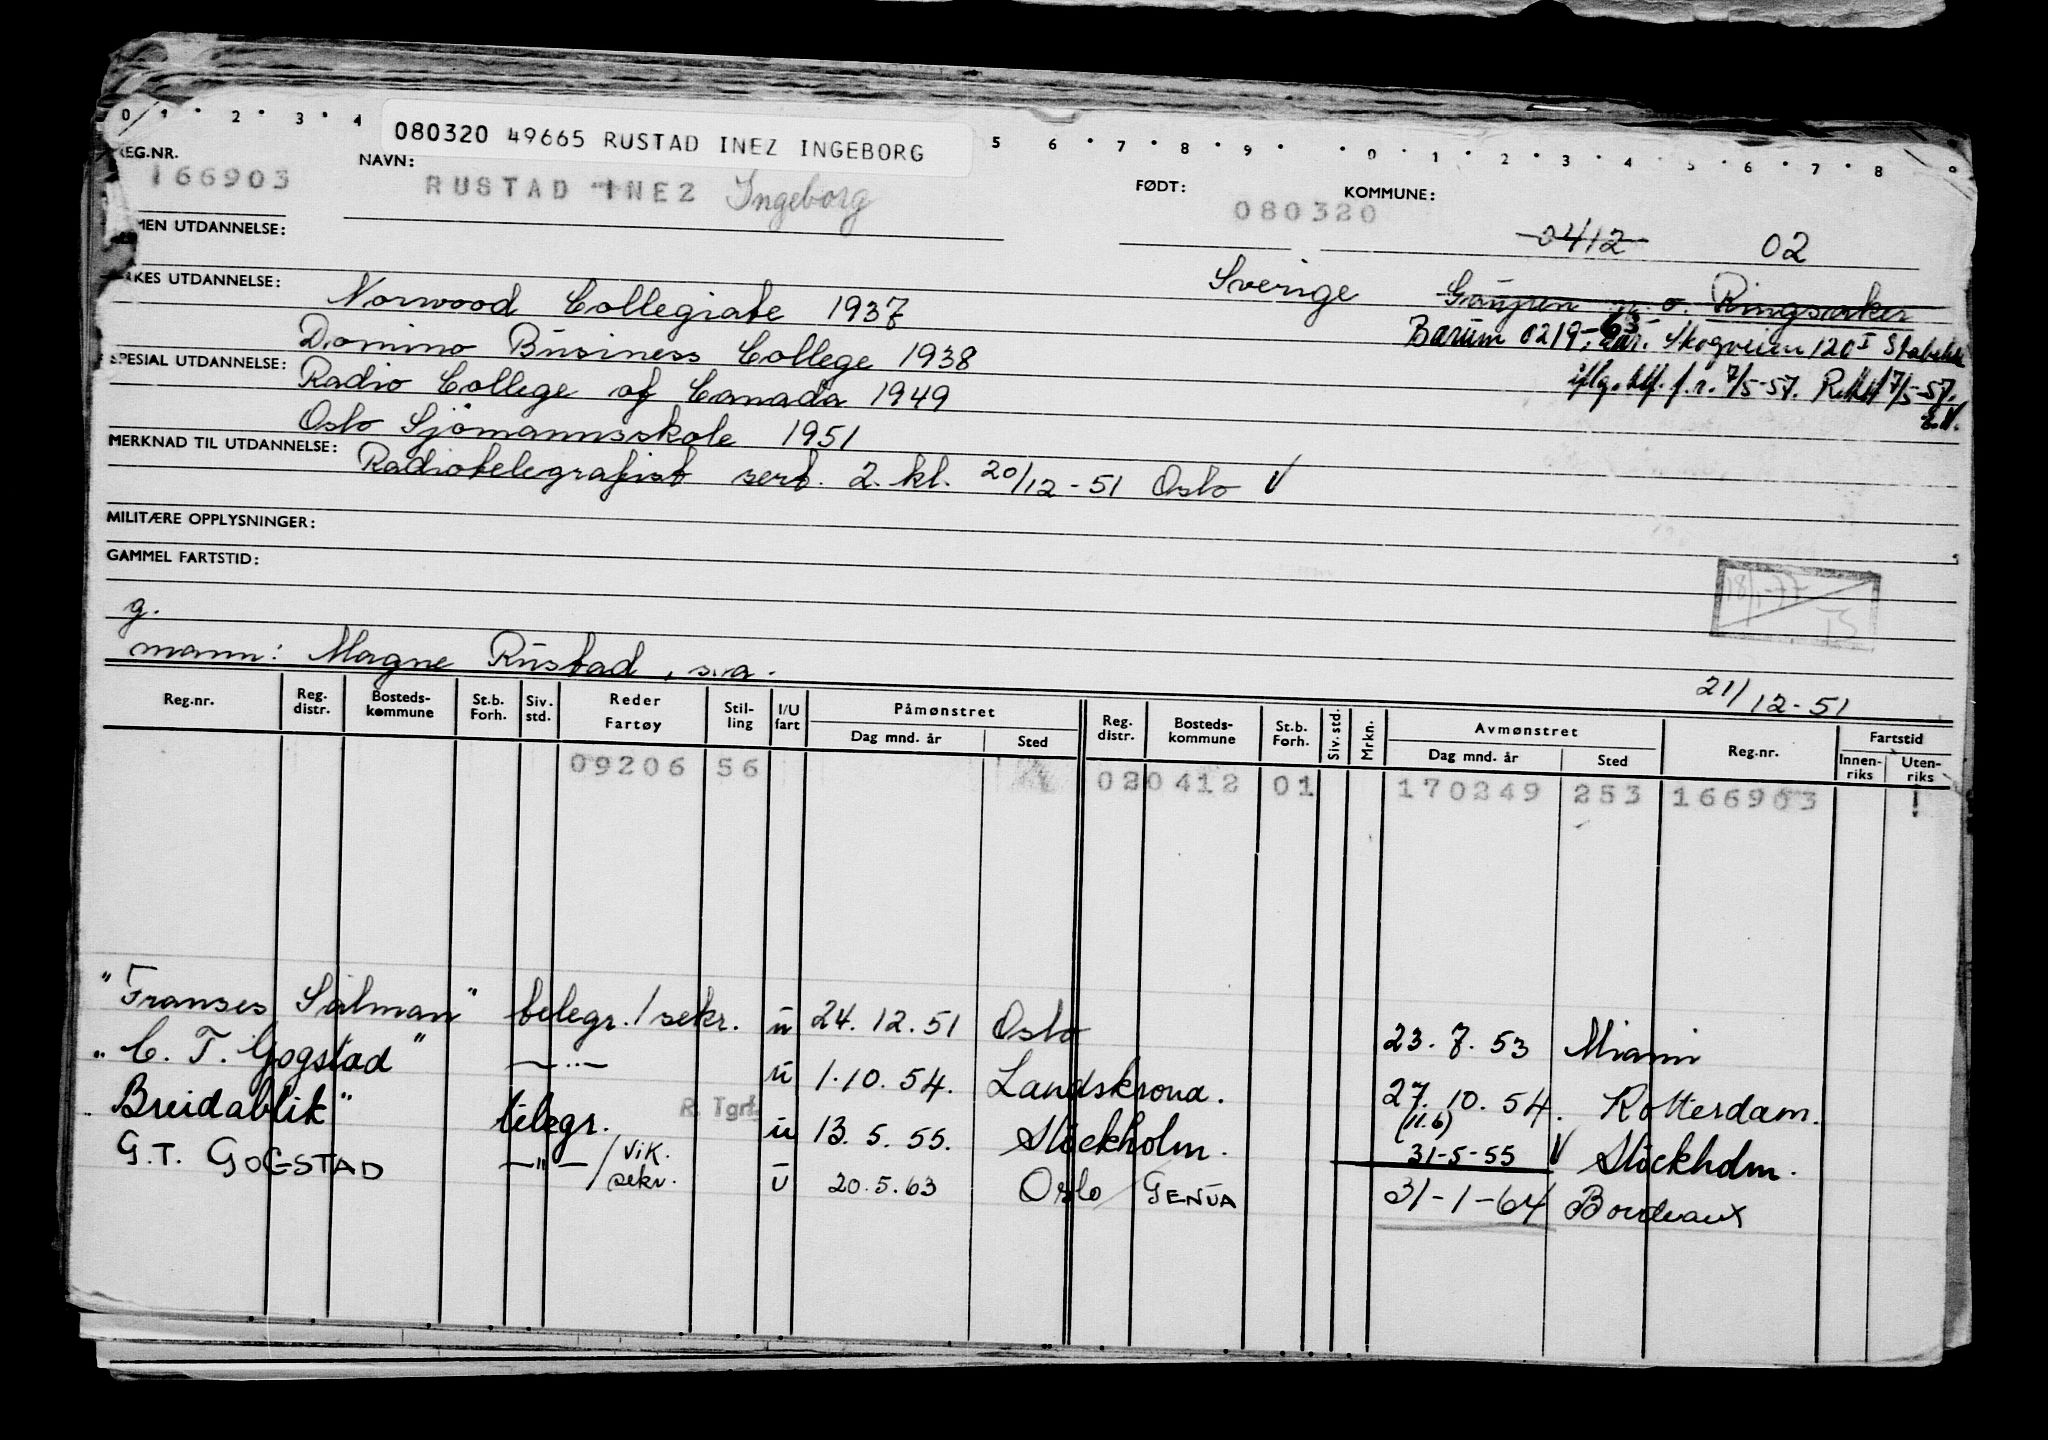 0 1 2 3 4 5 6 7 8 9 0 1 2 3 4 5 6 7 8 9
080320 49665 RUSTAD INEZ INGEBORG
REG.NR. NAVN: FØDT: KOMMUNE:
166903 RUSTAD INEZ Ingeborg 080320 0412 02
MEN UTDANNELSE:
KES UTDANNELSE: Sverige Gaupen o. Ringsaker
Norwood Collegiate 1937 Bærum 0219-63
Skogveien 120 I Stabekk
Domino Business College 1938
SPESIAL UTDANNELSE: iflg. f.r. 7/5-57. 7/5-57.
Radio College of Canada 1949
Oslo Sjømannsskole 1951
MERKNAD TIL UTDANNELSE:
Radiotelegrafist sert. 2. kl. 20/12-51 Oslo V
MILITÆRE OPPLYSNINGER:
GAMMEL FARTSTID:
18/1-77
g.
mann: Magne Rustad, s.a.
21/12-51
Reg.nr. Reg. distr. Bosteds-kommune St.b. Forh. Siv. std. Reder Fartøy Stil-ling I/U fart Påmønstret Dag mnd. år Sted Reg. distr. Bosteds-kommune St.b. Forh. Siv. std. Mrkn. Avmønstret Dag mnd. år Sted Reg.nr. Fartstid Innen-riks Uten-riks
09206 56 020412 01 170249 253 166903
"Franses Salman" telegr./sekr. u 24.12.51 Oslo 23.7.53 Miami
"C. T. Gogstad" —"— u 1.10.54. Landskrona. 27.10.54. Rotterdam.
(11.6)
Breidablik" telegr. R. Tgrf. u 13.5.55. Stockholm. 31-5-55 V Stockholm.
G.T. GOGSTAD —"—/Vik. sekr. u 20.5.63 Oslo/GENUA 31-1-64 Bordeaux